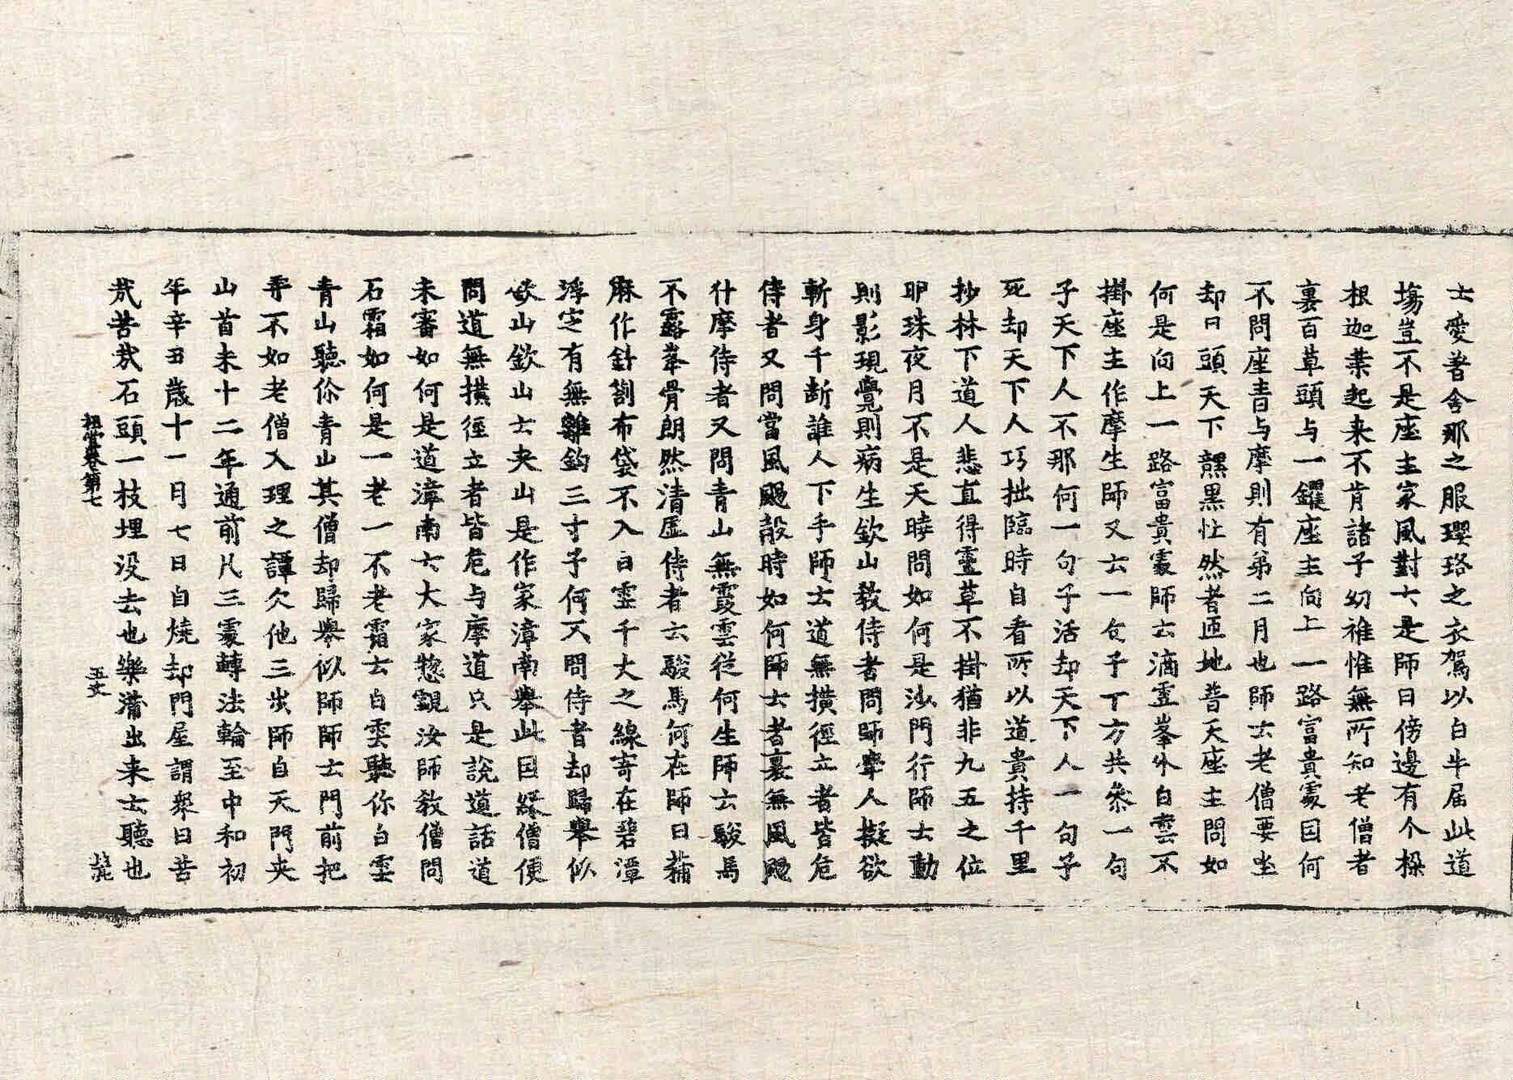 士愛著舍那之服瓔珞之衣駕以白牛屆此道
塲豈不是座主家風對六是師日傍邊有个樑
根迦葉起来不肯諸子幼稚惟無所知老僧者
裏百草頭与一鑺座主向上一路富貴處因何
不問座主日与摩則有苐二月也師云老僧要坐
却日頭天下黤黑忙然者迊地普天座主問如
何是向上一路富貴處師云滴霊峯外白雲不
掛座主作摩生師又云一句子十方共叅一句
子天下人不那何一句子活却天下人一句子
死却天下人巧拙臨時自看所以道貴持千里
抄林下道人悲直得霊草不掛猶非九五之位
卵珠夜月不是天暁問如何是沙門行師云動
則影現覺則病生欽山教侍者問師牽人擬欲
斬身千断誰人下手師云道無橫徑立者皆危
侍者又問當風颺㲉時如何師云者裏無風颺
什摩侍者又問青山無霞雲從何生師云駿馬
不露峯骨朗然清虛侍者云駿馬何在師日蒲
麻作針劄布袋不入白雲千丈之線寄在碧潭
浮定有無離鈎三寸子何不問侍者却歸舉似
欽山欽山云夹山是作家漳南舉此因緣僧便
問道無橫徑立者皆危与摩道只是說道話道
未審如何是道漳南云大家惣覰汝師教僧問
石霜如何是一老一不老霜云白雲聽你白雲
青山聽你青山其僧却歸舉似師師云門前把
弄不如老僧入理之譚欠他三歩師自天門夹
山首末十二年通前凡三處轉法輪至中和初
年辛丑歲十一月七日自燒却門屋謂衆日苦
㢤苦㢤石頭一枝埋没去也樂蒲出来云聽也
祖堂卷第七 五丈